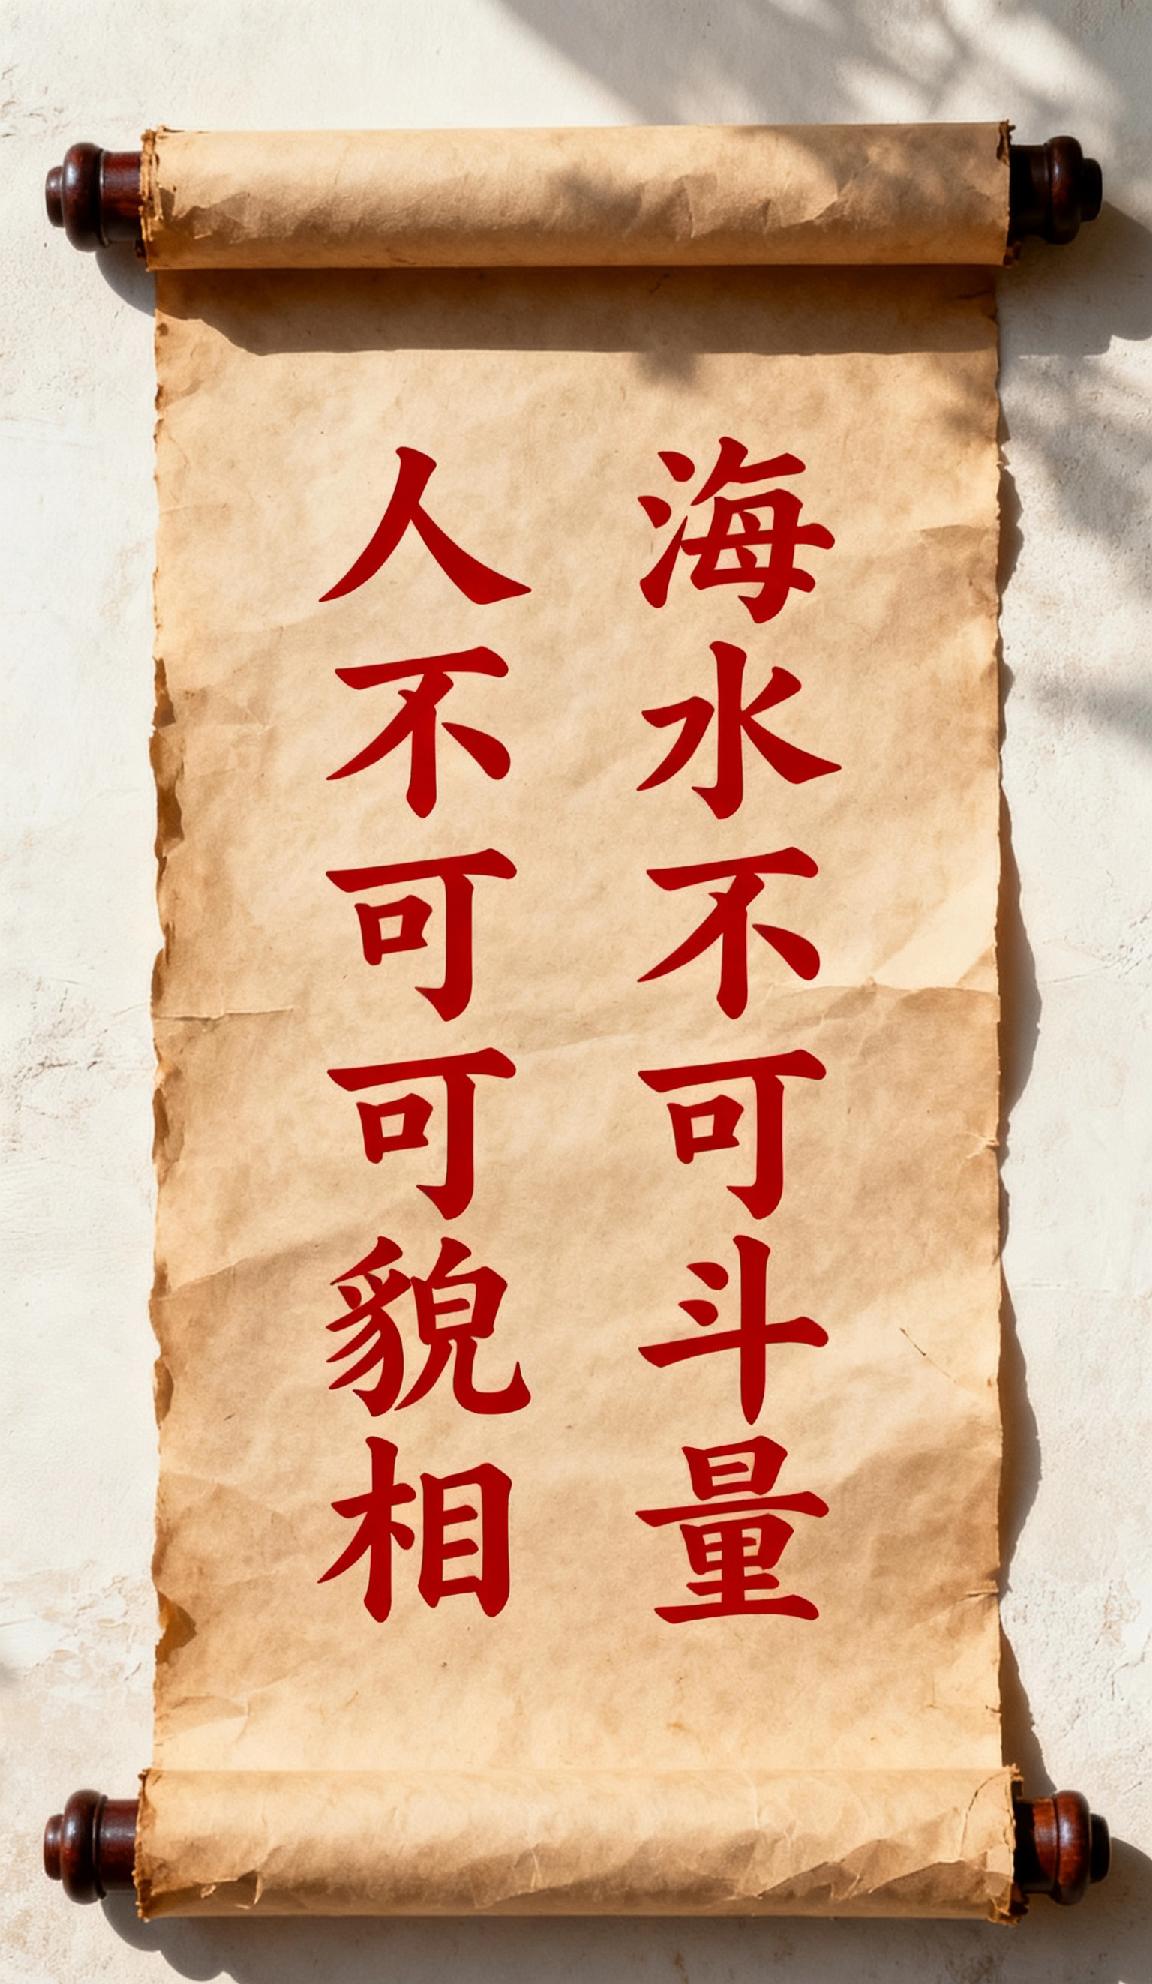 海水不可斗量
人不可可貌相